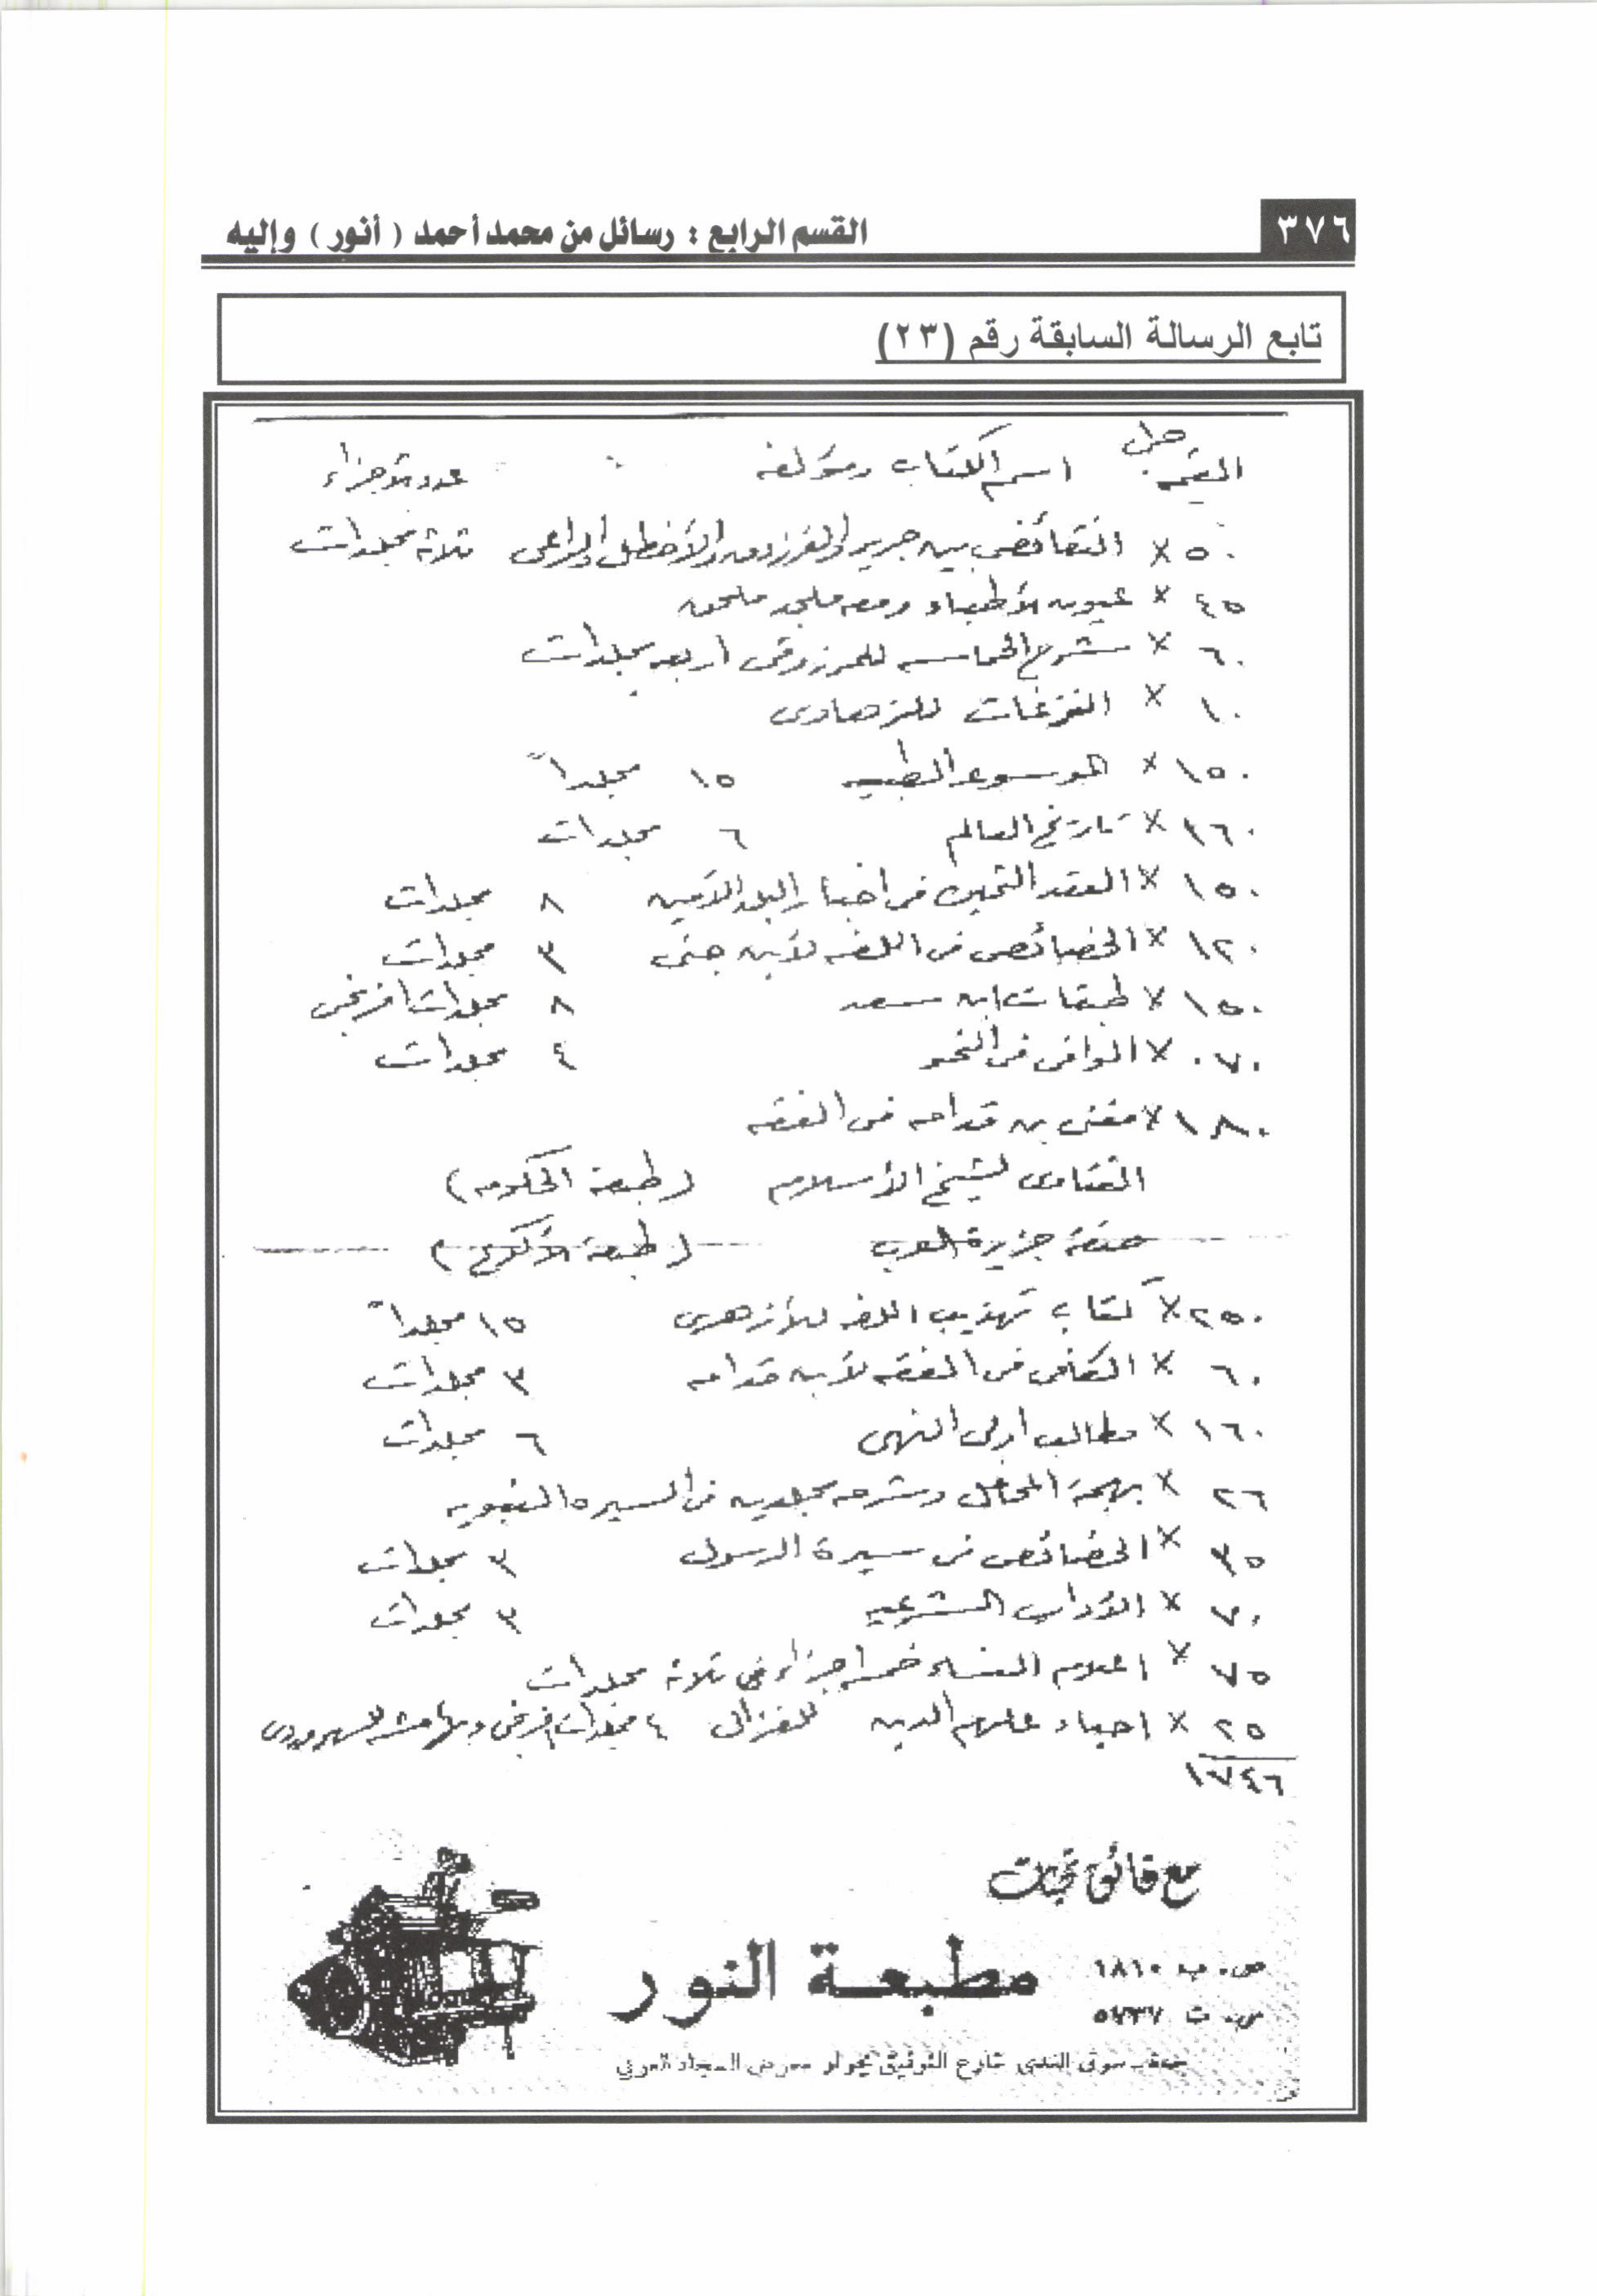 ٣٧٦
القسم الرابع : رسائل من محمد أحمد ( أنور ) وإليه
تابع الرسالة السابقة رقم (٢٣)
اسم الكتاب ومؤلفه عدد الأجزاء
٥٠ × النقائض بين جرير والفرزدق والأخطل والراعي ثلاثة مجلدات
٤٥ × عيون الأطباء ومعه مجلد ملحق
٦٠ × شرح الحماسه للمرزوقى اربعه مجلدات
١٠ × النزغات للزهاوى
١٥٠ × الموسوعه الطبيه ١٥ مجلداً
١٦٠ × تاريخ العالم ٦ مجلدات
١٥٠ × العقد الثمين فى اخبار البلد الأمين ٨ مجلدات
١٢٠ × الخصائص فى اللغه لأبن جنى ٣ مجلدات
١٥٠ × طبقات ابن سعد ٨ مجلدات افرنجى
٠٧٠ × الوافى فى النحو ٤ مجلدات
١٨٠ × مغنى بن قدامه فى الفقه
الفتاوى لشيخ الأسلام (طبعة الحكومه)
صفة جزيرة العرب (طبعة الأكوع)
٢٥٠ × كتاب تهذيب اللغه للأزهرى ١٥ مجلداً
٦٠ × الكافى فى الفقه لأبن قدامه ٣ مجلدات
١٦٠ × مطالب اولى النهى ٦ مجلدات
٢٦ × بهجة المحافل وشرحه مجلدين فى السيره النبويه
٣٥ × الخصائص فى سيرة الرسول ٣ مجلدات
٧٠ × الآداب الشرعيه ٣ مجلدات
٧٥ × اعلام النساء خمسه اجزاء فى ثلاثة مجلدات
٢٥ × احياء علوم الدين للغزالى ٤ مجلدات افرنجى وبهامشه السهروردى
١٧٤٦
مع فائق تحيات
مطبعة النور
ص. ب ١٨١٠
س. ت ٥٧٣٧
سوق الندى شارع التوفيق بجوار معرض السجاد العربي